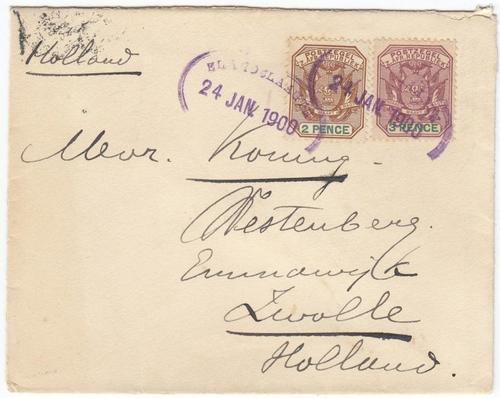 Holland
24 JAN 1900
24 JAN 1900
POSTZEGEL
Z. AFR. REPUBLIEK
2 PENCE
POSTZEGEL
Z. AFR. REPUBLIEK
3 PENCE
Mevr. Koning
Westenberg.
Emmawijk
Zwolle
Holland.